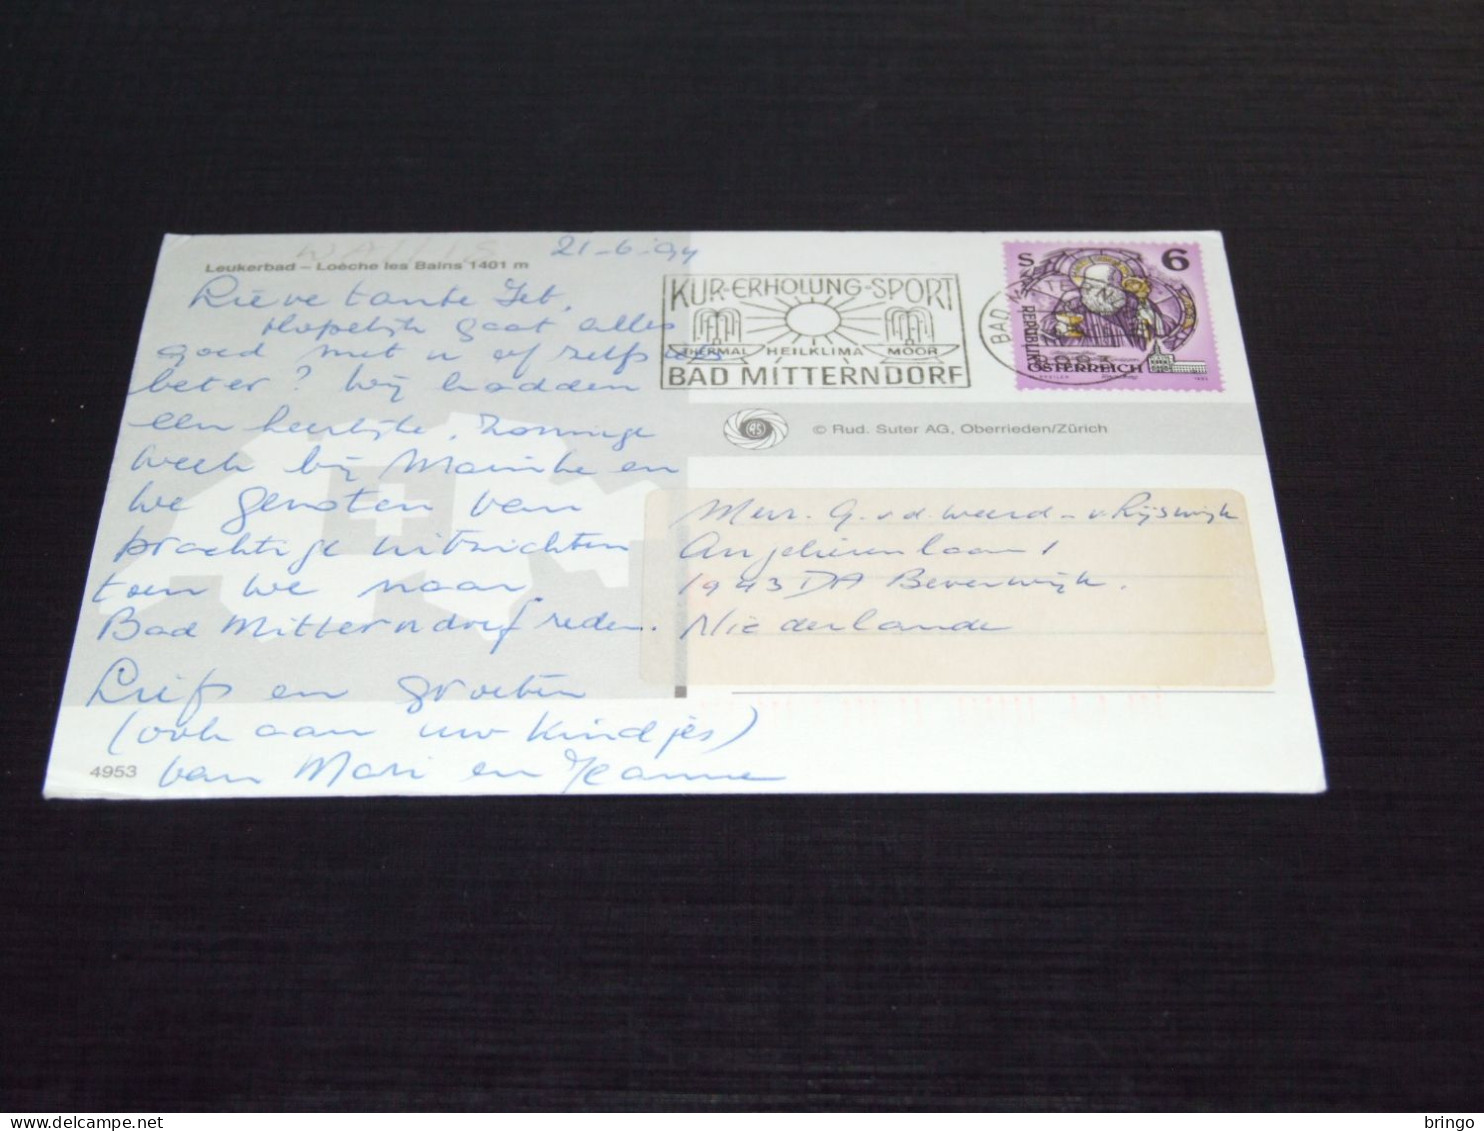 WALLIS
Leukerbad – Loèche les Bains 1401 m
21-6-94
Lieve tante Jet,
Hopelijk gaat alles
goed met u of zelfs iets
beter? Wij hadden
een heerlijke, zonnige
week bij Marijke en
we genoten van
prachtige uitzichten
toen we naar
Bad Mitterndorf reden.
Liefs en groeten
(ook aan uw kindjes)
van Mari en Jeanne
4953
KUR-ERHOLUNG-SPORT
THERMAL HEILKLIMA MOOR
BAD MITTERNDORF
BAD
S 6
REPUBLIK
ÖSTERREICH
© Rud. Suter AG, Oberrieden/Zürich
Mevr. G. v.d. Weerd-v. Rijswijk
Anjelierenlaan 1
1943 DA Beverwijk.
Niederlande
bringo
delcampe.net